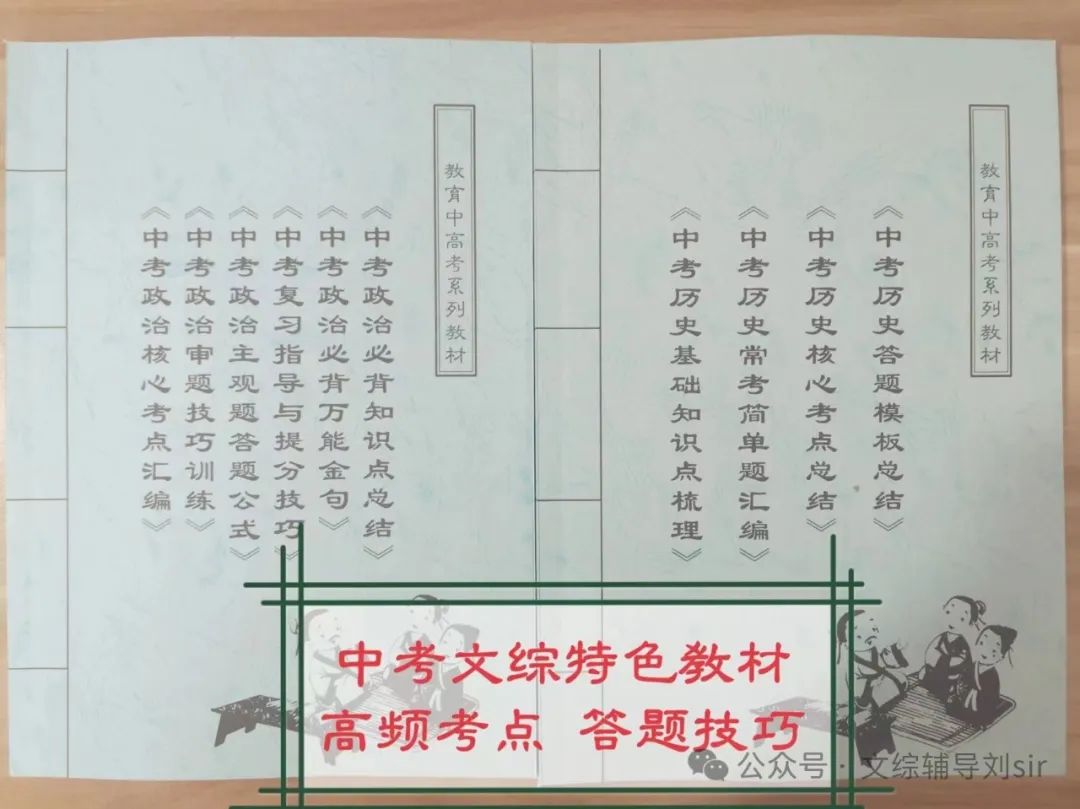 教育中高考系列教材
《中考政治必背知识点总结》
《中考政治必背万能金句》
《中考复习指导与提分技巧》
《中考政治主观题答题公式》
《中考政治审题技巧训练》
《中考政治核心考点汇编》
教育中高考系列教材
《中考历史答题模板总结》
《中考历史核心考点总结》
《中考历史常考简单题汇编》
《中考历史基础知识点梳理》
中考文综特色教材
高频考点 答题技巧
公众号·文综辅导刘sir